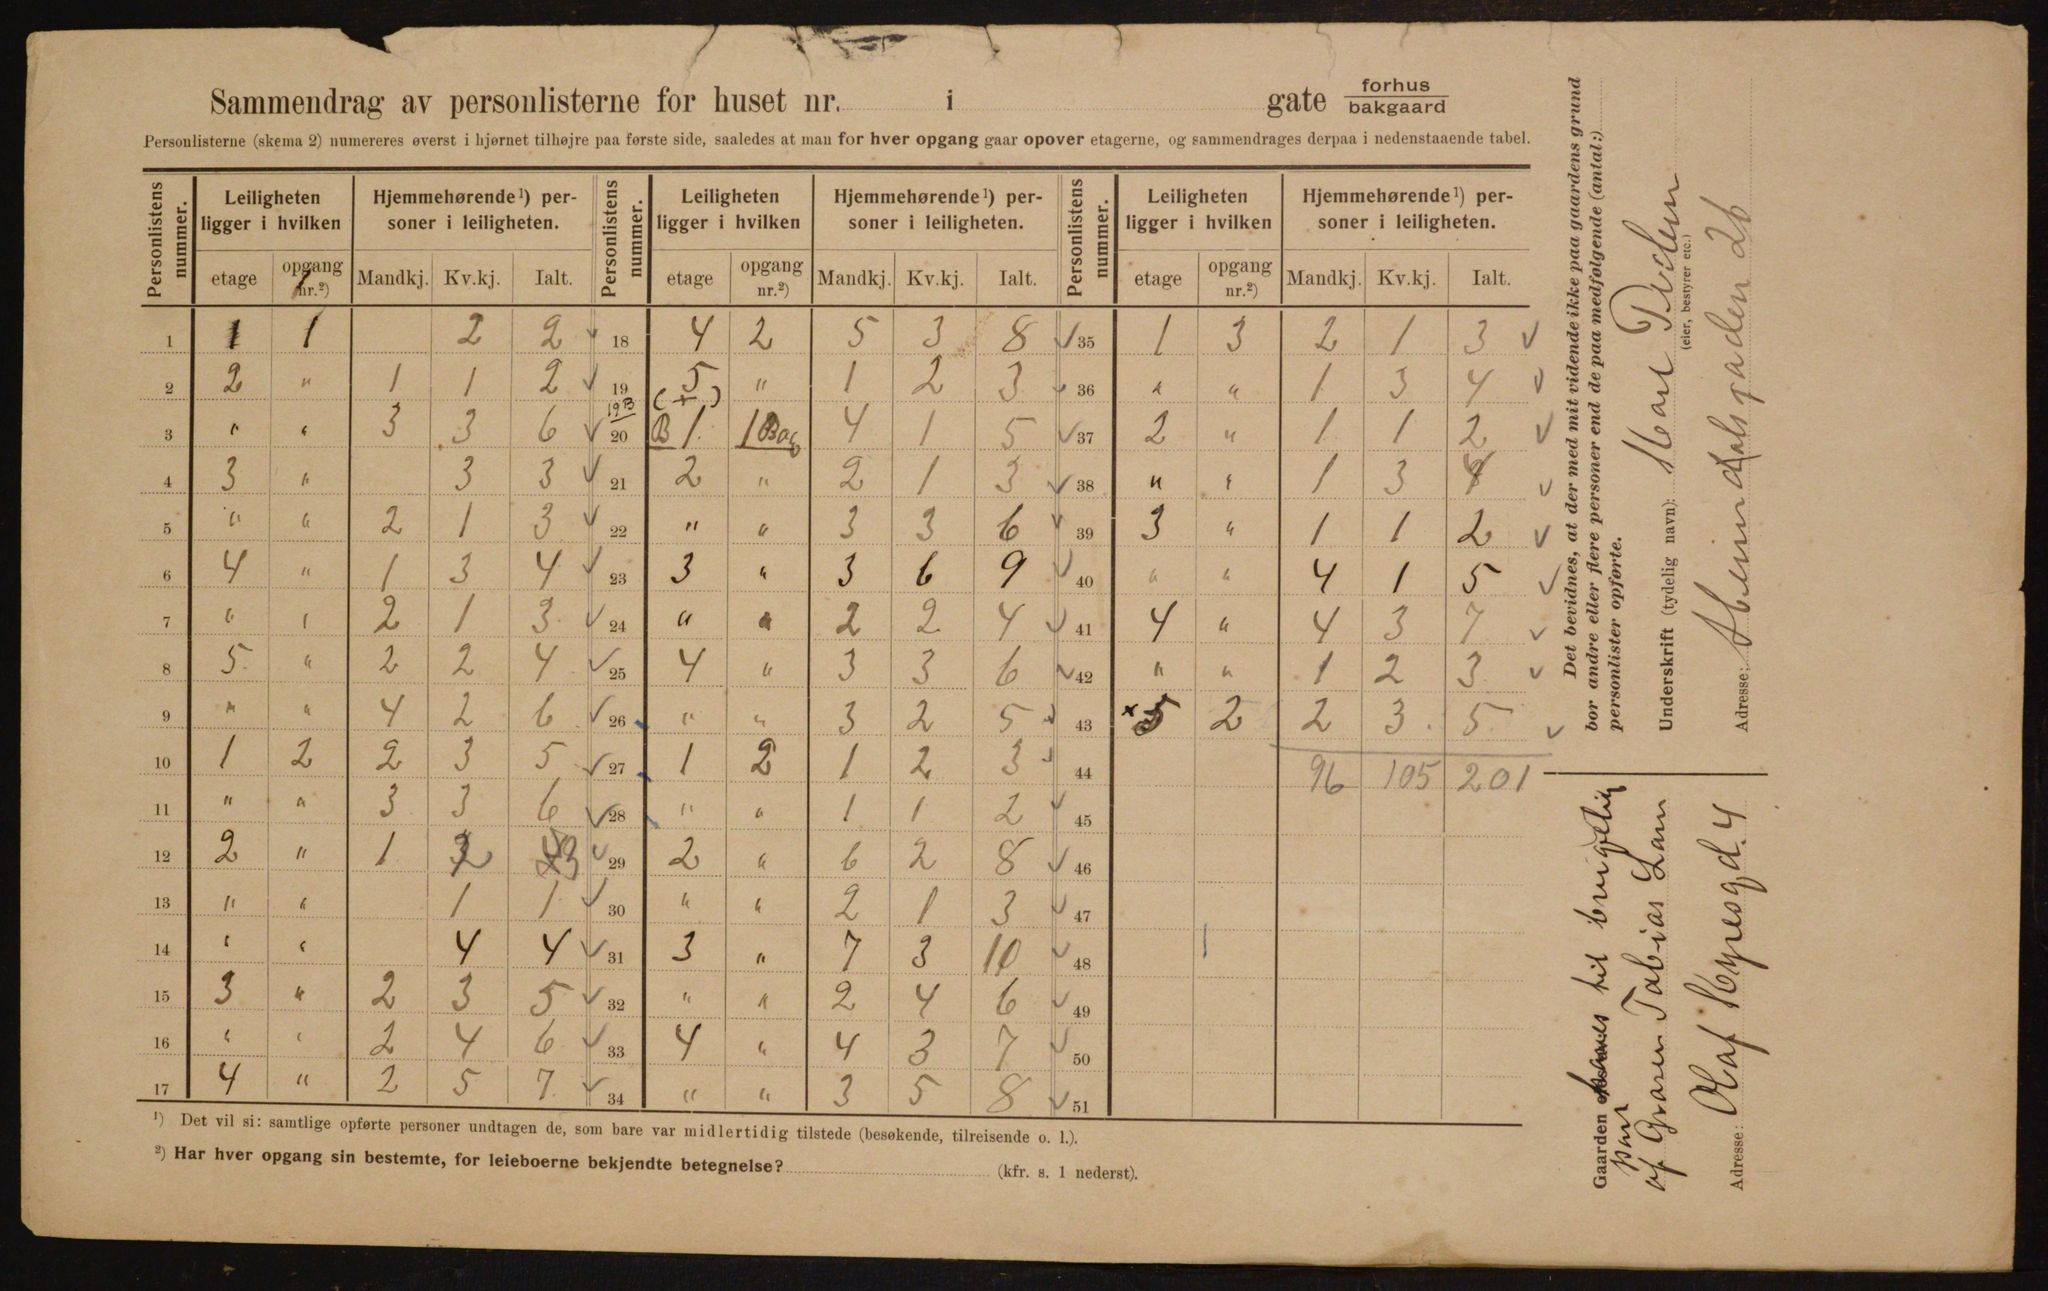 Sammendrag av personlisterne for huset nr. i gate forhus bakgaard
Personlisterne (skema 2) numereres øverst i hjørnet tilhøjre paa første side, saaledes at man for hver opgang gaar opover etagerne, og sammendrages derpaa i nedenstaaende tabel.
Personlistens nummer. Leiligheten ligger i hvilken Hjemmehørende ¹) personer i leiligheten. Personlistens nummer. Leiligheten ligger i hvilken Hjemmehørende ¹) personer i leiligheten. Personlistens nummer. Leiligheten ligger i hvilken Hjemmehørende ¹) personer i leiligheten.
etage opgang nr.²) Mandkj. Kv.kj. Ialt. etage opgang nr.²) Mandkj. Kv.kj. Ialt. etage opgang nr.²) Mandkj. Kv.kj. Ialt.
1 1 1 2 2 18 4 2 5 3 8 35 1 3 2 1 3
2 2 " 1 1 2 19 5 " 1 2 3 36 " " 1 3 4
3 " " 3 3 6 20 B 1 1 Bag 4 1 5 37 2 " 1 1 2
4 3 " 3 3 21 2 " 2 1 3 38 " " 1 3 4
5 " " 2 1 3 22 " " 3 3 6 39 3 " 1 1 2
6 4 " 1 3 4 23 3 " 3 6 9 40 " " 4 1 5
7 " " 2 1 3 24 " " 2 2 4 41 4 " 4 3 7
8 5 " 2 2 4 25 4 " 3 3 6 42 " " 1 2 3
9 " " 4 2 6 26 " " 3 2 5 43 x 5 2 2 3 5
10 1 2 2 3 5 27 1 2 1 2 3 44 96 105 201
11 " " 3 3 6 28 " " 1 1 2 45
12 2 " 1 2 3 29 2 " 6 2 8 46
13 " " 1 1 30 " " 2 1 3 47
14 " " 4 4 31 3 " 7 3 10 48
15 3 " 2 3 5 32 " " 2 4 6 49
16 " " 2 4 6 33 4 " 4 3 7 50
17 4 " 2 5 7 34 " " 3 5 8 51
¹) Det vil si: samtlige opførte personer undtagen de, som bare var midlertidig tilstede (besøkende, tilreisende o. l.).
²) Har hver opgang sin bestemte, for leieboerne bekjendte betegnelse? (kfr. s. 1 nederst).
Det bevidnes, at der med mit vidende ikke paa gaardens grund
bor andre eller flere personer end de paa medfølgende (antal:)
personlister opførte.
Underskrift (tydelig navn):
(eier, bestyrer etc.)
Adresse: 26
Gaarden til
af Tobias
Adresse: Olaf 4